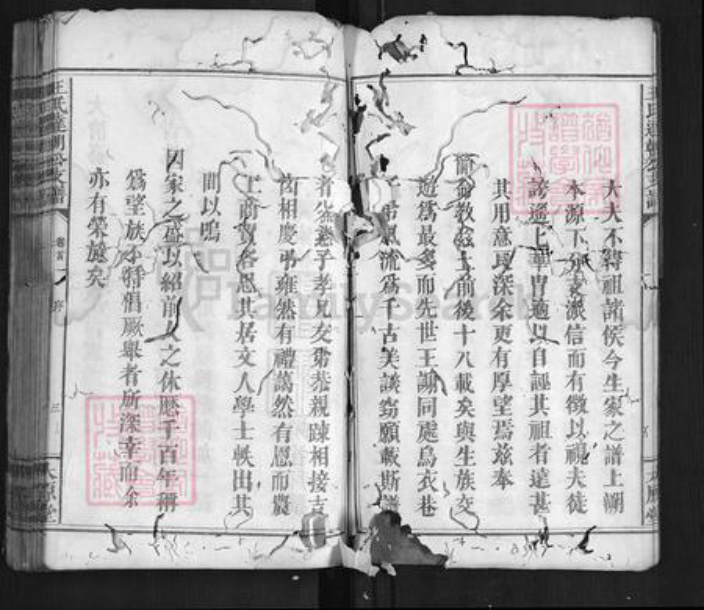 大夫不得祖諸侯今生家之譜上溯
本源下分支派信而有徵以視夫徒
誇遙遙華胄適以自誣其祖者遠甚
其用意良深余更有厚望焉茲奉
簡命教茲土前後十八載矣與生族交
遊爲最多而先世王謝同處烏衣巷
風流爲千古美談竊願載斯譜
者父慈子孝兄友弟恭親踈相接吉
凶相慶弔雍然有禮藹然有恩而農
工商賈各思其居文人學士軼出其
間以鳴
國家之盛以紹前人之休歷千百年稱
爲望族不特倡厥舉者所深幸而余
亦有榮施矣
王氏達朝公支譜
卷首
序
三
太原堂
FamilySearch